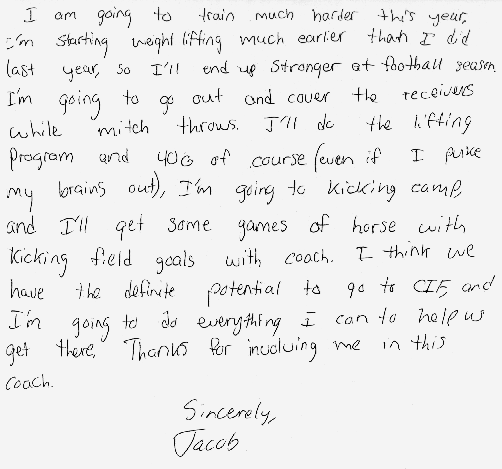 I am going to train much harder this year,
I'm starting weight lifting much earlier than I did
last year, so I'll end up stronger at football season
I'm going to go out and cover the receivers
while mitch throws. I'll do the lifting
program and 40s of course (even if I puke
my brains out), I'm going to kicking camp,
and I'll get some games of horse with
kicking field goals with coach. I think we
have the definite potential to go to CIF, and
I'm going to do everything I can to help us
get there. Thanks for involving me in this
coach.
Sincerely,
Jacob